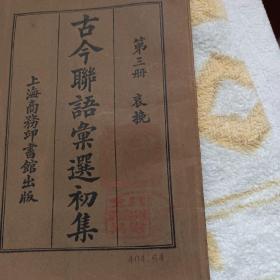 第三册 哀挽
古今聯語彙選初集
上海商務印書館出版
404.64